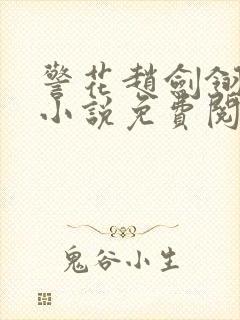 警花趙劍翎
小說免費閱
鬼谷小生